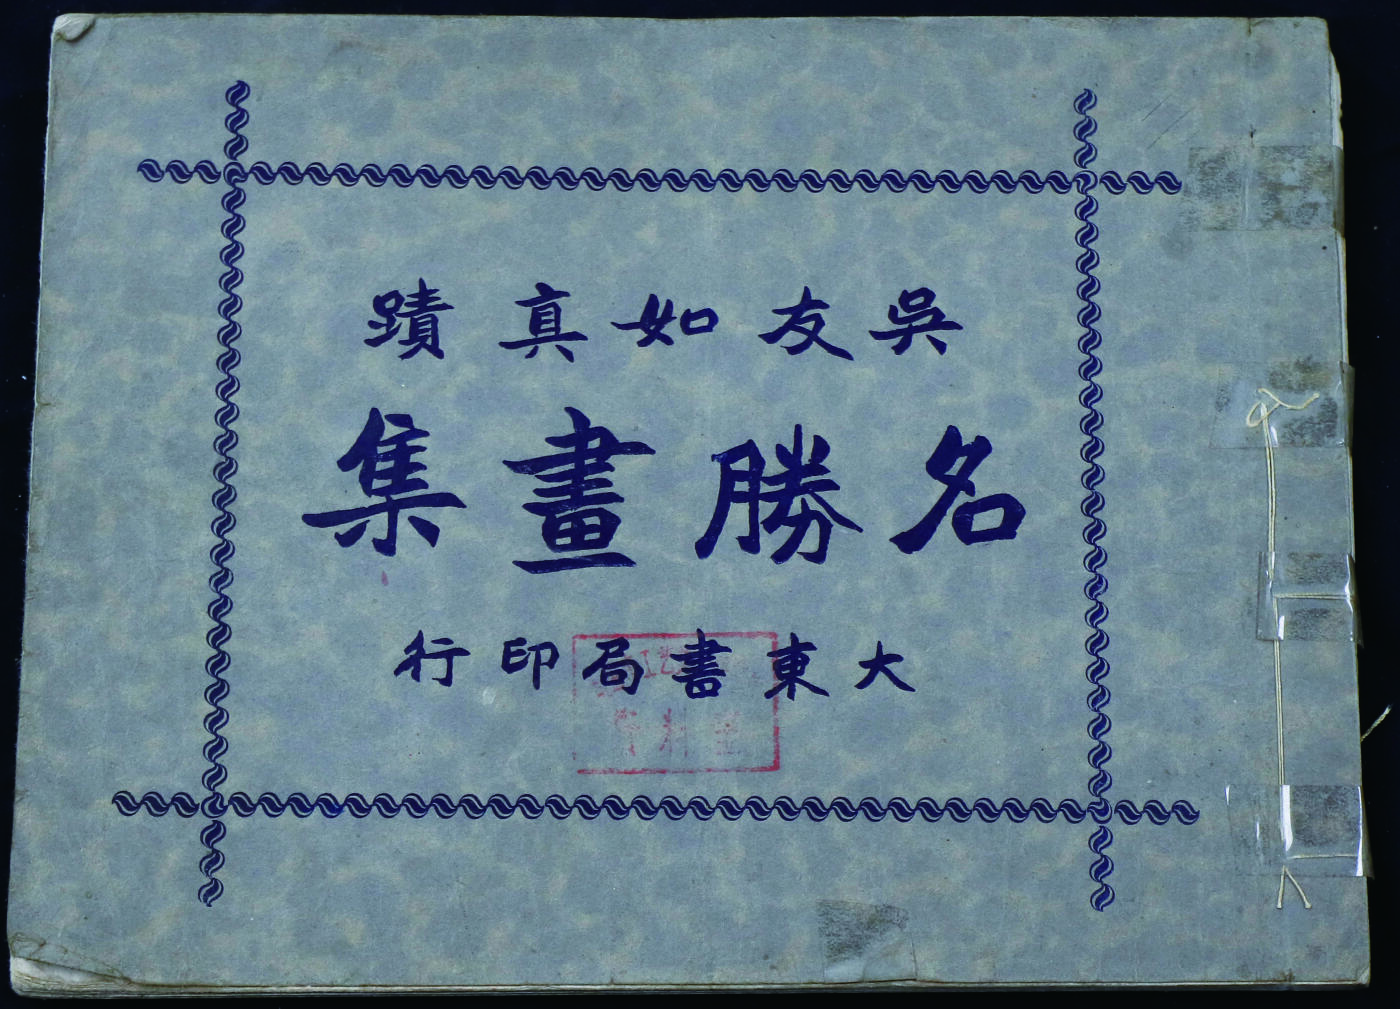 吳友如真蹟
名勝畫集
大東書局印行
資料室